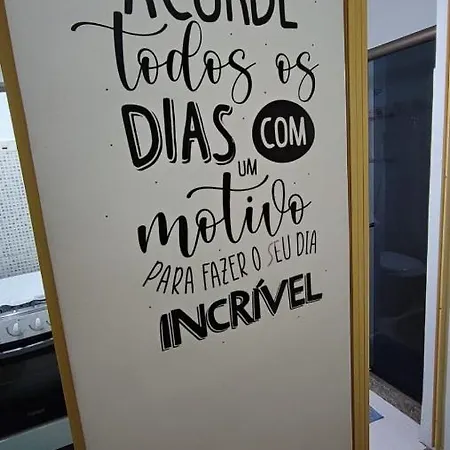 ACORDE
todos os
DIAS COM
UM
motivo
PARA FAZER O SEU DIA
INCRÍVEL